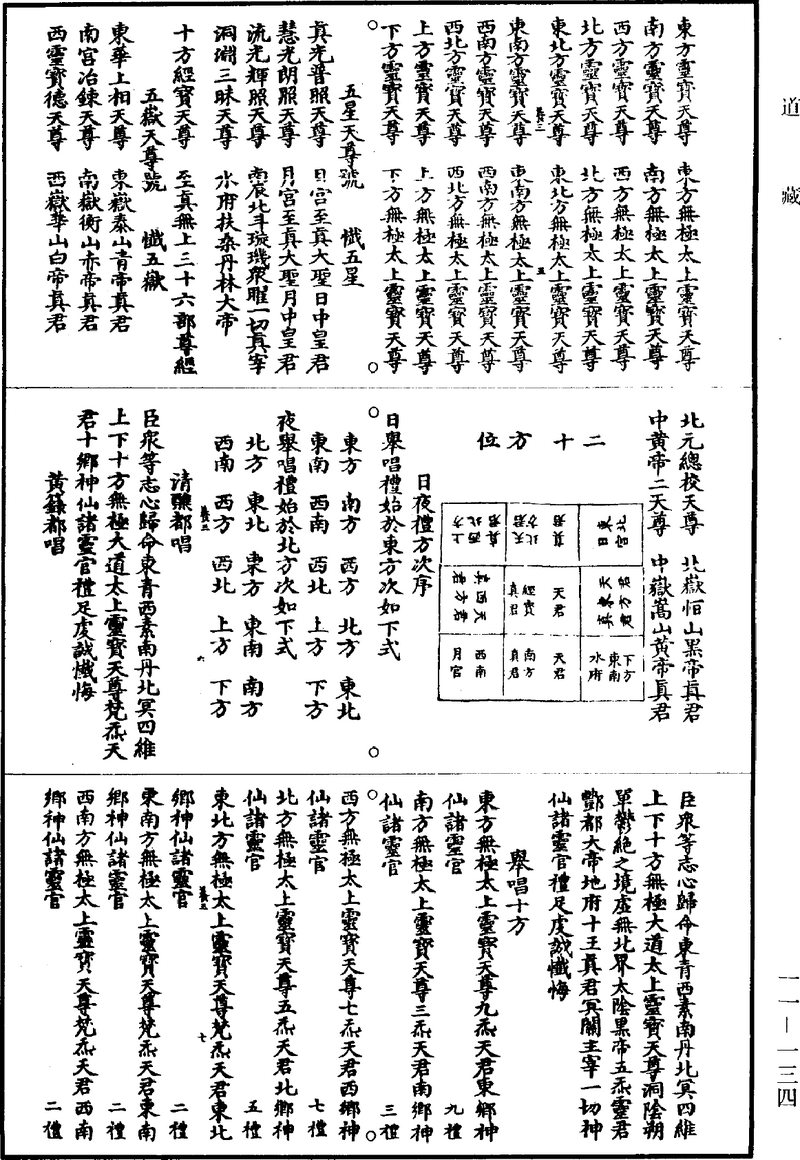 道藏
東方靈寶天尊　東方無極太上靈寶天尊
南方靈寶天尊　南方無極太上靈寶天尊
西方靈寶天尊　西方無極太上靈寶天尊
北方靈寶天尊　北方無極太上靈寶天尊
東北方靈寶天尊　東北方無極太上靈寶天尊
東南方靈寶天尊　東南方無極太上靈寶天尊
西南方靈寶天尊　西南方無極太上靈寶天尊
西北方靈寶天尊　西北方無極太上靈寶天尊
上方靈寶天尊　上方無極太上靈寶天尊
下方靈寶天尊　下方無極太上靈寶天尊
五星天尊號　懺五星
真光普照天尊　日宮至真大聖日中皇君
慧光朗照天尊　月宮至真大聖月中皇君
流光輝照天尊　南辰北斗璇璣衆曜一切真宰
洞淵三昧天尊　水府扶桒丹林大帝
十方經寶天尊　至真無上三十六部尊經
五嶽天尊號　懺五嶽
東華上相天尊　東嶽泰山青帝真君
南宮冶鍊天尊　南嶽衡山赤帝真君
西靈寶德天尊　西嶽華山白帝真君
北元總校天尊　北嶽恒山黑帝真君
中黃帝二天尊　中嶽嵩山黃帝真君
二十方位
天君
經寶
真君
天君
南方
真君
下方
東南
水府
西南
月宮
日夜禮方次序
日舉唱禮始於東方次如下式
東方　南方　西方　北方　東北
東南　西南　西北　上方　下方
夜舉唱禮始於北方次如下式
北方　東北　東方　東南　南方
西南　西方　西北　上方　下方
六
清醮都唱
臣衆等志心歸命東青西素南丹北冥四維
上下十方無極大道太上靈寶天尊梵炁天
君十鄉神仙諸靈官禮足虔誠懺悔
黃籙都唱
臣衆等志心歸命東青西素南丹北冥四維
上下十方無極大道太上靈寶天尊洞陰朔
單鬱絶之境虛無北界太陰黑帝五炁靈君
酆都大帝地府十王真君冥關主宰一切神
仙諸靈官禮足虔誠懺悔
舉唱十方
東方無極太上靈寶天尊九炁天君東鄉神
仙諸靈官　九禮
南方無極太上靈寶天尊三炁天君南鄉神
仙諸靈官　三禮
西方無極太上靈寶天尊七炁天君西鄉神
仙諸靈官　七禮
北方無極太上靈寶天尊五炁天君北鄉神
仙諸靈官　五禮
東北方無極太上靈寶天尊梵炁天君東北
七
鄉神仙諸靈官　二禮
東南方無極太上靈寶天尊梵炁天君東南
鄉神仙諸靈官　二禮
西南方無極太上靈寶天尊梵炁天君西南
鄉神仙諸靈官　二禮
一一—一三四